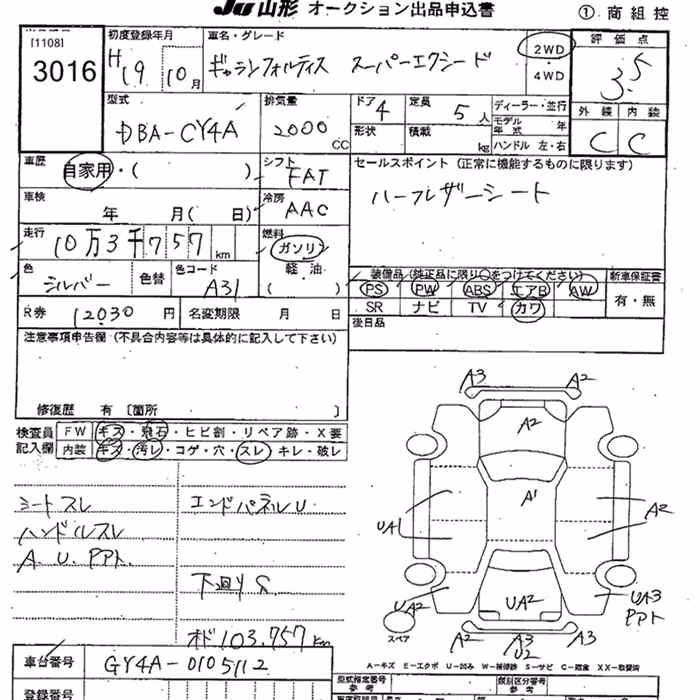 JU 山形 オークション出品申込書 ① 商 組 控
[1108]
3016
初度登録年月 H19 10月
車名・グレード ギャランフォルティス スーパーエクシード
2WD ・ 4WD
評価点 3.5
外装 内装
C C
型式 DBA-CY4A
排気量 2000 CC
ドア 4 定員 5人
形状 積載 kg
ディーラー・並行
モデル年式 年
ハンドル 左・右
車歴 自家用・( )
シフト FAT
セールスポイント (正常に機能するものに限ります)
ハーフレザーシート
車検 年 月( 日)
冷房 AAC
走行 10万3千757 km
燃料 ガソリン 軽油 ( )
色 シルバー 色替 色コード A31
装備品 (純正品に限り○をつけてください) 新車保証書
PS PW ABS エアB AW 有・無
SR ナビ TV カワ
後日品
R券 12030 円 名変期限 月 日
注意事項申告欄 (不具合内容等は具体的に記入して下さい)
修復歴 有 〔箇所 〕
検査員記入欄
FW キズ・飛石・ヒビ割・リペア跡・X要
内装 キズ・汚レ・コゲ・穴・スレ・キレ・破レ
シートスレ エンドパネルU
ハンドルスレ
A.U.PPト.
下廻りS
オド103,757km
A3 A2
A2
A1
UA1 A2
UA2 UA2 UA3
PPト
スペア
A2 A3 A3
U2
A-キズ E-エクボ U-凹み W-補修跡 S-サビ C-腐食 XX-取替済
車台番号 GY4A-0105112
登録番号
型式指定番号 参考
類別区分番号 参考